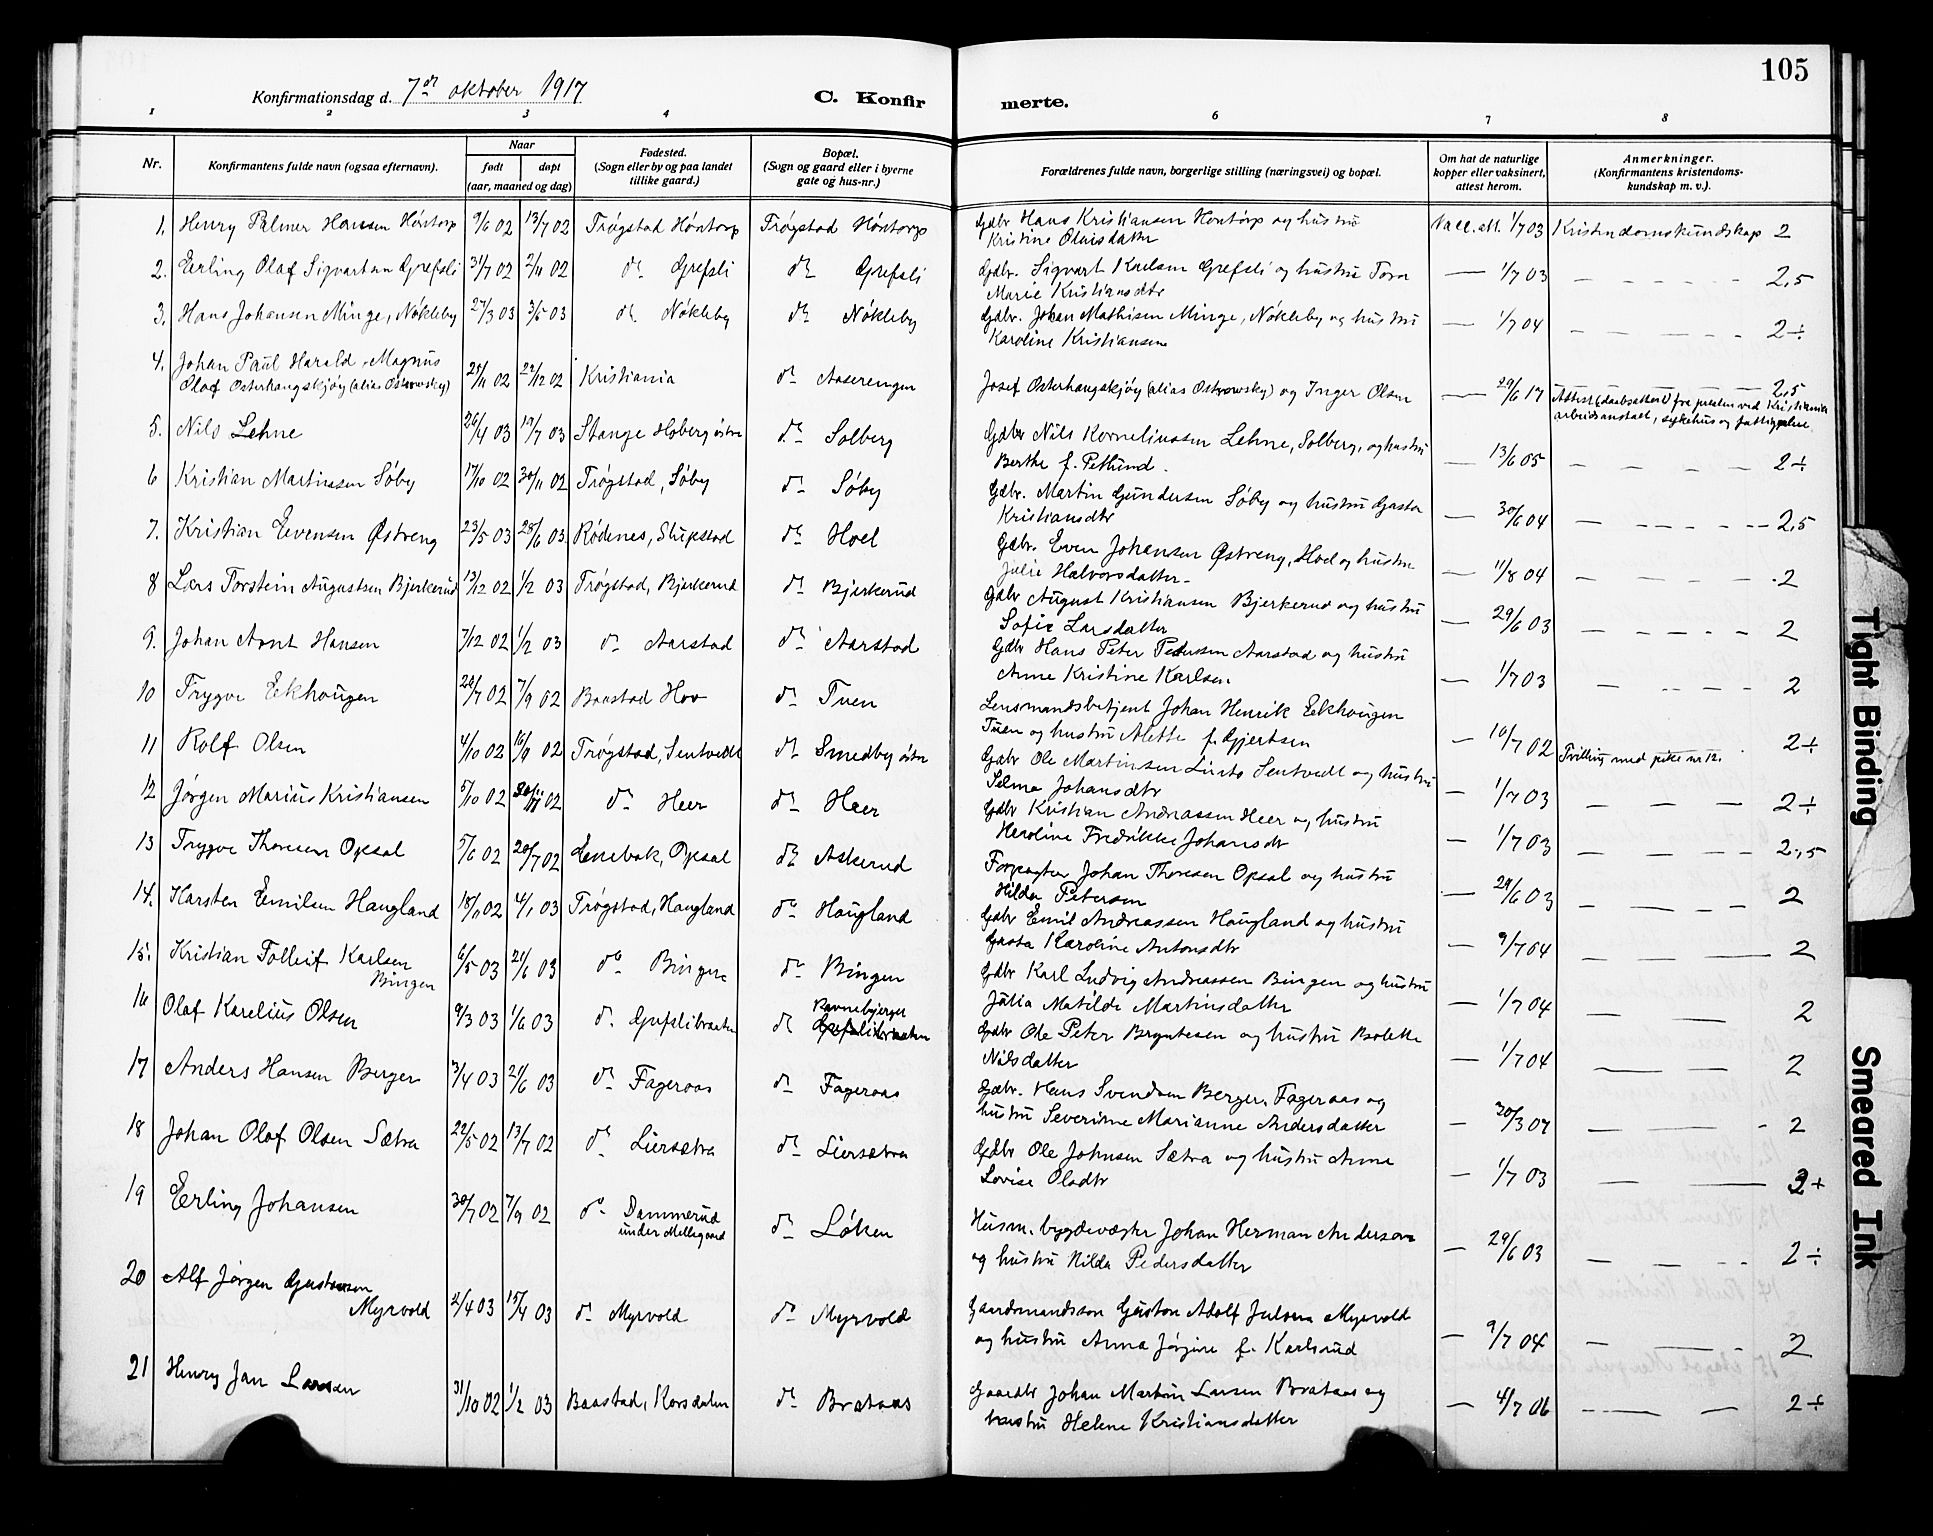 105
Konfirmationsdag d. 7de oktober 1917
C. Konfirmerte.
1 2 3 4 6 7 8
Nr. Konfirmantens fulde navn (ogsaa efternavn). Naar født døpt (aar, maaned og dag) Fødested. (Sogn eller by og paa landet tillike gaard.) Bopæl. (Sogn og gaard eller i byerne gate og hus-nr.) Forældrenes fulde navn, borgerlige stilling (næringsvei) og bopæl. Om hat de naturlige kopper eller vaksinert, attest herom. Anmerkninger. (Konfirmantens kristendoms-kundskap m. v.).
1. Henry Palmer Hanssen Höntorp 9/6 02 13/7 02 Trøgstad Höntorp Trøgstad Höntorp Gdbr Hans Kristiansen Hontorp og hustru
Kristine Olaisdatter Vacc. att. 1/7 03 Kristendomskundskap 2
2. Erling Olaf Sigvartsen Grefsli 31/7 02 2/11 02 do Grefsli do Grefsli Gdbr. Sigvart Karlsen Grefsli og hustru Tora
Marie Kristiansdtr — 1/7 03 — 2,5
3. Hans Johansen Minge, Nökleby 27/3 03 3/5 03 do Nökleby do Nökleby Gdbr. Johan Mathisen Minge, Nökleby og hustru
Karoline Kristiansen — 1/7 04 — 2÷
4. Johan Paul Harald Magnus
Olaf Osterhaugskjøy (alias Ostrowsky) 25/11 02 22/12 02 Kristiania do Aaserengen Josef Osterhaugskjøy (alias Ostrowsky) og Inger Olsen — 29/6 17 — 2,5
Attest (daabsattest) fra presten ved Kristiania
arbeidsanstalt, sykehus og fattigpleie.
5. Nils Lehne 26/4 03 19/7 03 Stange Hoberg østre do Solberg Gdbr Nils Korneliussen Lehne, Solberg, og hustru
Berthe f. Petlund. — 13/6 05 — 2÷
6 Kristian Martinssen Söby 17/10 02 30/11 02 Trøgstad, Söby do Söby Gdbr. Martin Gundersen Söby og hustru Gusta
Kristiansdtr — 30/6 04 — 2,5
7. Kristian Evensen Østreng 23/5 03 28/6 03 Rödenes, Slupstad do Hoel Gdbr. Even Johansen Østreng, Hoel og hustru
Julie Halvorsdatter. — 11/8 04 — 2
8 Lars Torstein Augustsen Bjerkerud 13/12 02 1/2 03 Trøgstad, Bjerkerud do Bjerkerud Gdbr August Kristiansen Bjerkerud og hustru
Sofie Larsdatter — 29/6 03 — 2
9. Johan Arnt Hansen 7/12 02 1/2 03 do Aarstad do Aarstad Gdbr Hans Peter Pettersen Aarstad og hustru
Anne Kristine Karlsen — 1/7 03 — 2
10 Trygve Ekhougen 26/7 02 7/9 02 Baastad Hov do Tuen Lensmandsbetjent Johan Henrik Eekhougen
Tuen og hustru Alette f. Gjertsen — 10/7 02 — 2÷
11 Rolf Olsen 4/10 02 16/9 02 Trøgstad, Sentvedt do Smedby östre Gdbr Ole Martinsen Sentvedt og hustru
Selma Johansdtr Tvilling med pike nr 12. — 1/7 03 — 2÷
12 Jörgen Marius Kristiansen 5/10 02 30/11 02 do Heer do Heer Gdbr Kristian Andreassen Heer og hustru
Fredrikke Johansdtr — 1/7 03 — 2,5
13 Trygve Thoresen Opsal 5/6 02 20/7 02 Enebak, Opsal do Askerud Forpagter Johan Thoresen Opsal og hustru
Hilda Petersen — 29/6 03 — 2
14. Karsten Emilsen Haugland 18/11 02 4/1 03 Trøgstad, Haugland do Haugland Gdbr Emil Andreassen Haugland og hustru
Gusta Karoline Antonsdtr — 9/7 04 — 2
15. Kristian Tolleif Karlsen
Bingen 6/5 03 21/6 03 do Bingen do Bingen Gdbr Karl Ludvig Andreassen Bingen og hustru
Julia Matilde Martinsdatter — 1/7 04 — 2
16 Olaf Karelius Olsen 9/3 03 1/6 03 do Grefslibraaten do Ravnebjerget
Grefslibraaten Gdbr Ole Peter Bryntesen og hustru Bolette
Nilsdatter — 1/7 04 — 2
17 Anders Hansen Berger 3/4 03 21/6 03 do Fageraas do Fageraas Gdbr. Hans Svendsen Berger, Fageraas og
hustru Severine Marianne Andersdatter — 30/3 07 — 2
18 Johan Olaf Olsen Sætra 22/5 02 13/7 02 do Liersætra do Liersætra Gdbr Ole Johnsen Sætra og hustru Anne
Lovise Olsdtr — 1/7 03 — 2+
19 Erling Johansen 30/7 02 7/9 02 do Dammerud
under Mellegaard do Löken Husm. bygdevægter Johan Herman Andersen
og hustru Hilda Pedersdatter — 29/6 03 — 2÷
20 Alf Jörgen Gustavsen
Myrvold 2/4 03 15/4 03 do Myrvold do Myrvold Gaardmandssön Gustav Adolf Julsen Myrvold
og hustru Anna Jörgine f. Karlsrud — 9/7 04 — 2
21 Henry Jan Larsen 31/10 02 1/2 03 Baastad, Korsdalen do Brataas Gaardbr Johan Martin Larsen Brataas og
hustru Helene Kristiansdatter — 4/7 06 — 2÷
Tight Binding
Smeared Ink